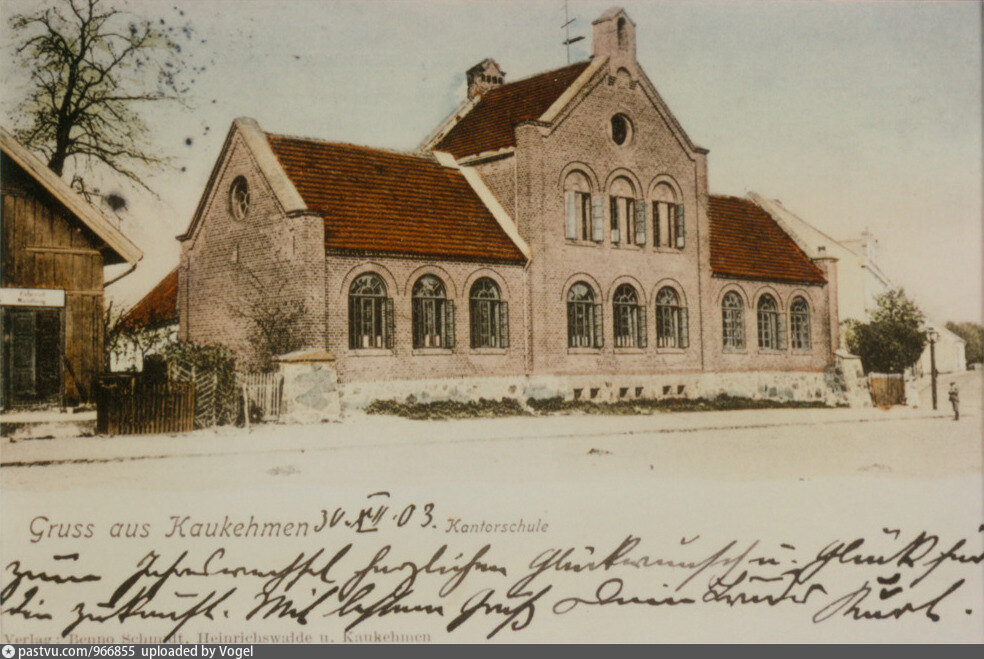 Gruss aus Kaukehmen 30.XII.03. Kantorschule
zum Jahreswechsel herzlichen Glückwunsch u. Glück für
die Zukunft. Mit bestem Gruß Dein Bruder Kurt.
Verlag: Benno Schmidt, Heinrichswalde u. Kaukehmen
pastvu.com/966855 uploaded by Vogel